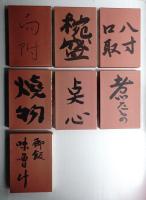 向附
椀盛
八寸
口取
焼物
点心
煮もの
御飯
味噌汁